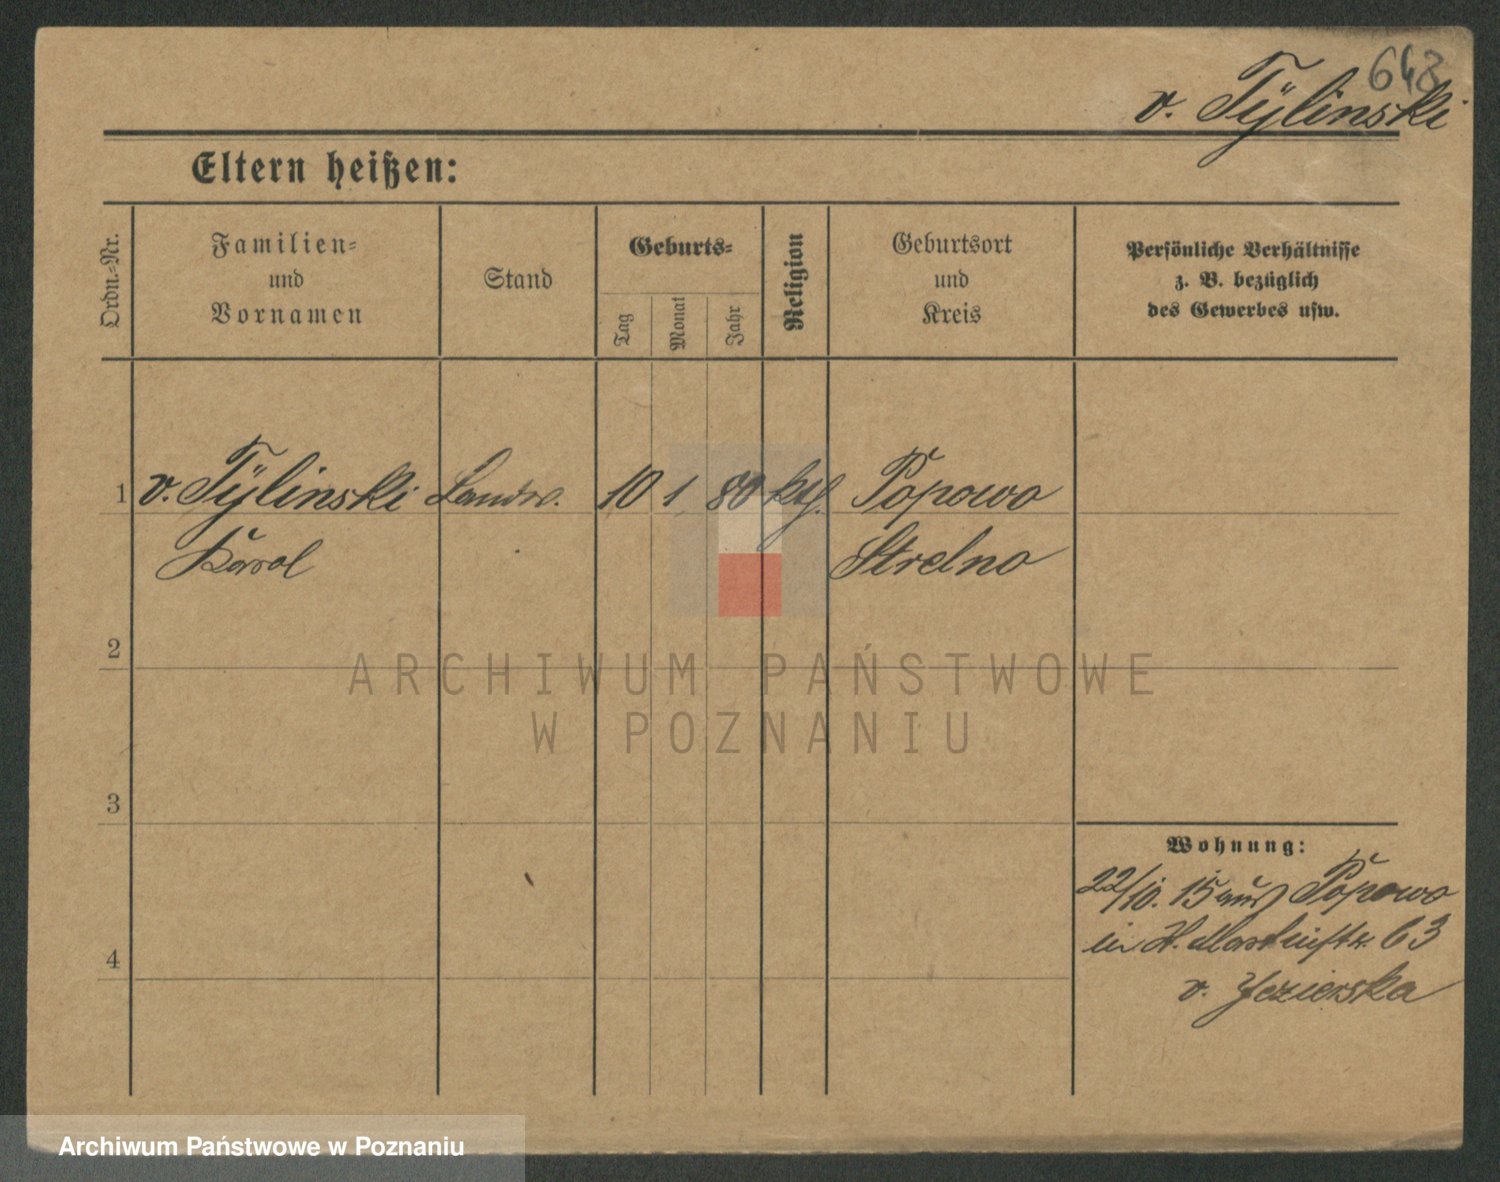 648
v. Tÿlinski
Eltern heißen:
Ordn.-Nr.
Familien-
und
Vornamen
Stand
Geburts-
Tag
Monat
Jahr
Religion
Geburtsort
und
Kreis
Persönliche Verhältnisse
z. B. bezüglich
des Gewerbes usw.
1 v. Tÿlinski Landw. 10 1 80 kth. Popowo
Karol Strelno
2
3
4
Wohnung:
22/10. 15 aus Popowo
in H. Martinstr. 63
v. Jezierska
ARCHIWUM PAŃSTWOWE
W POZNANIU
Archiwum Państwowe w Poznaniu